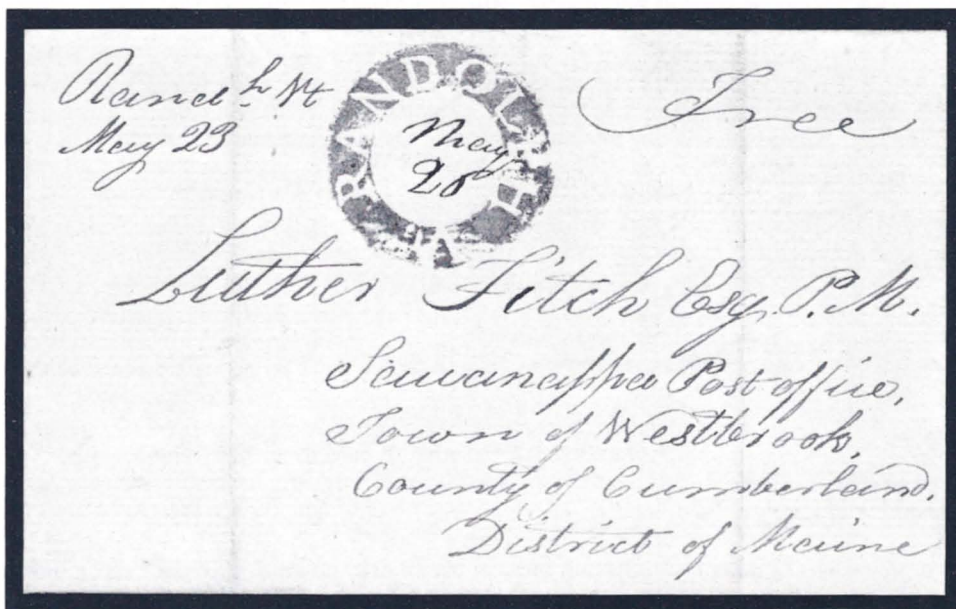 Rand.h Vt
May 23
RANDOLPH
May
20
Free
Luther Fitch Esq. P.M.
Sawanappa Post office,
Town of Westbrook,
County of Cumberland.
District of Maine